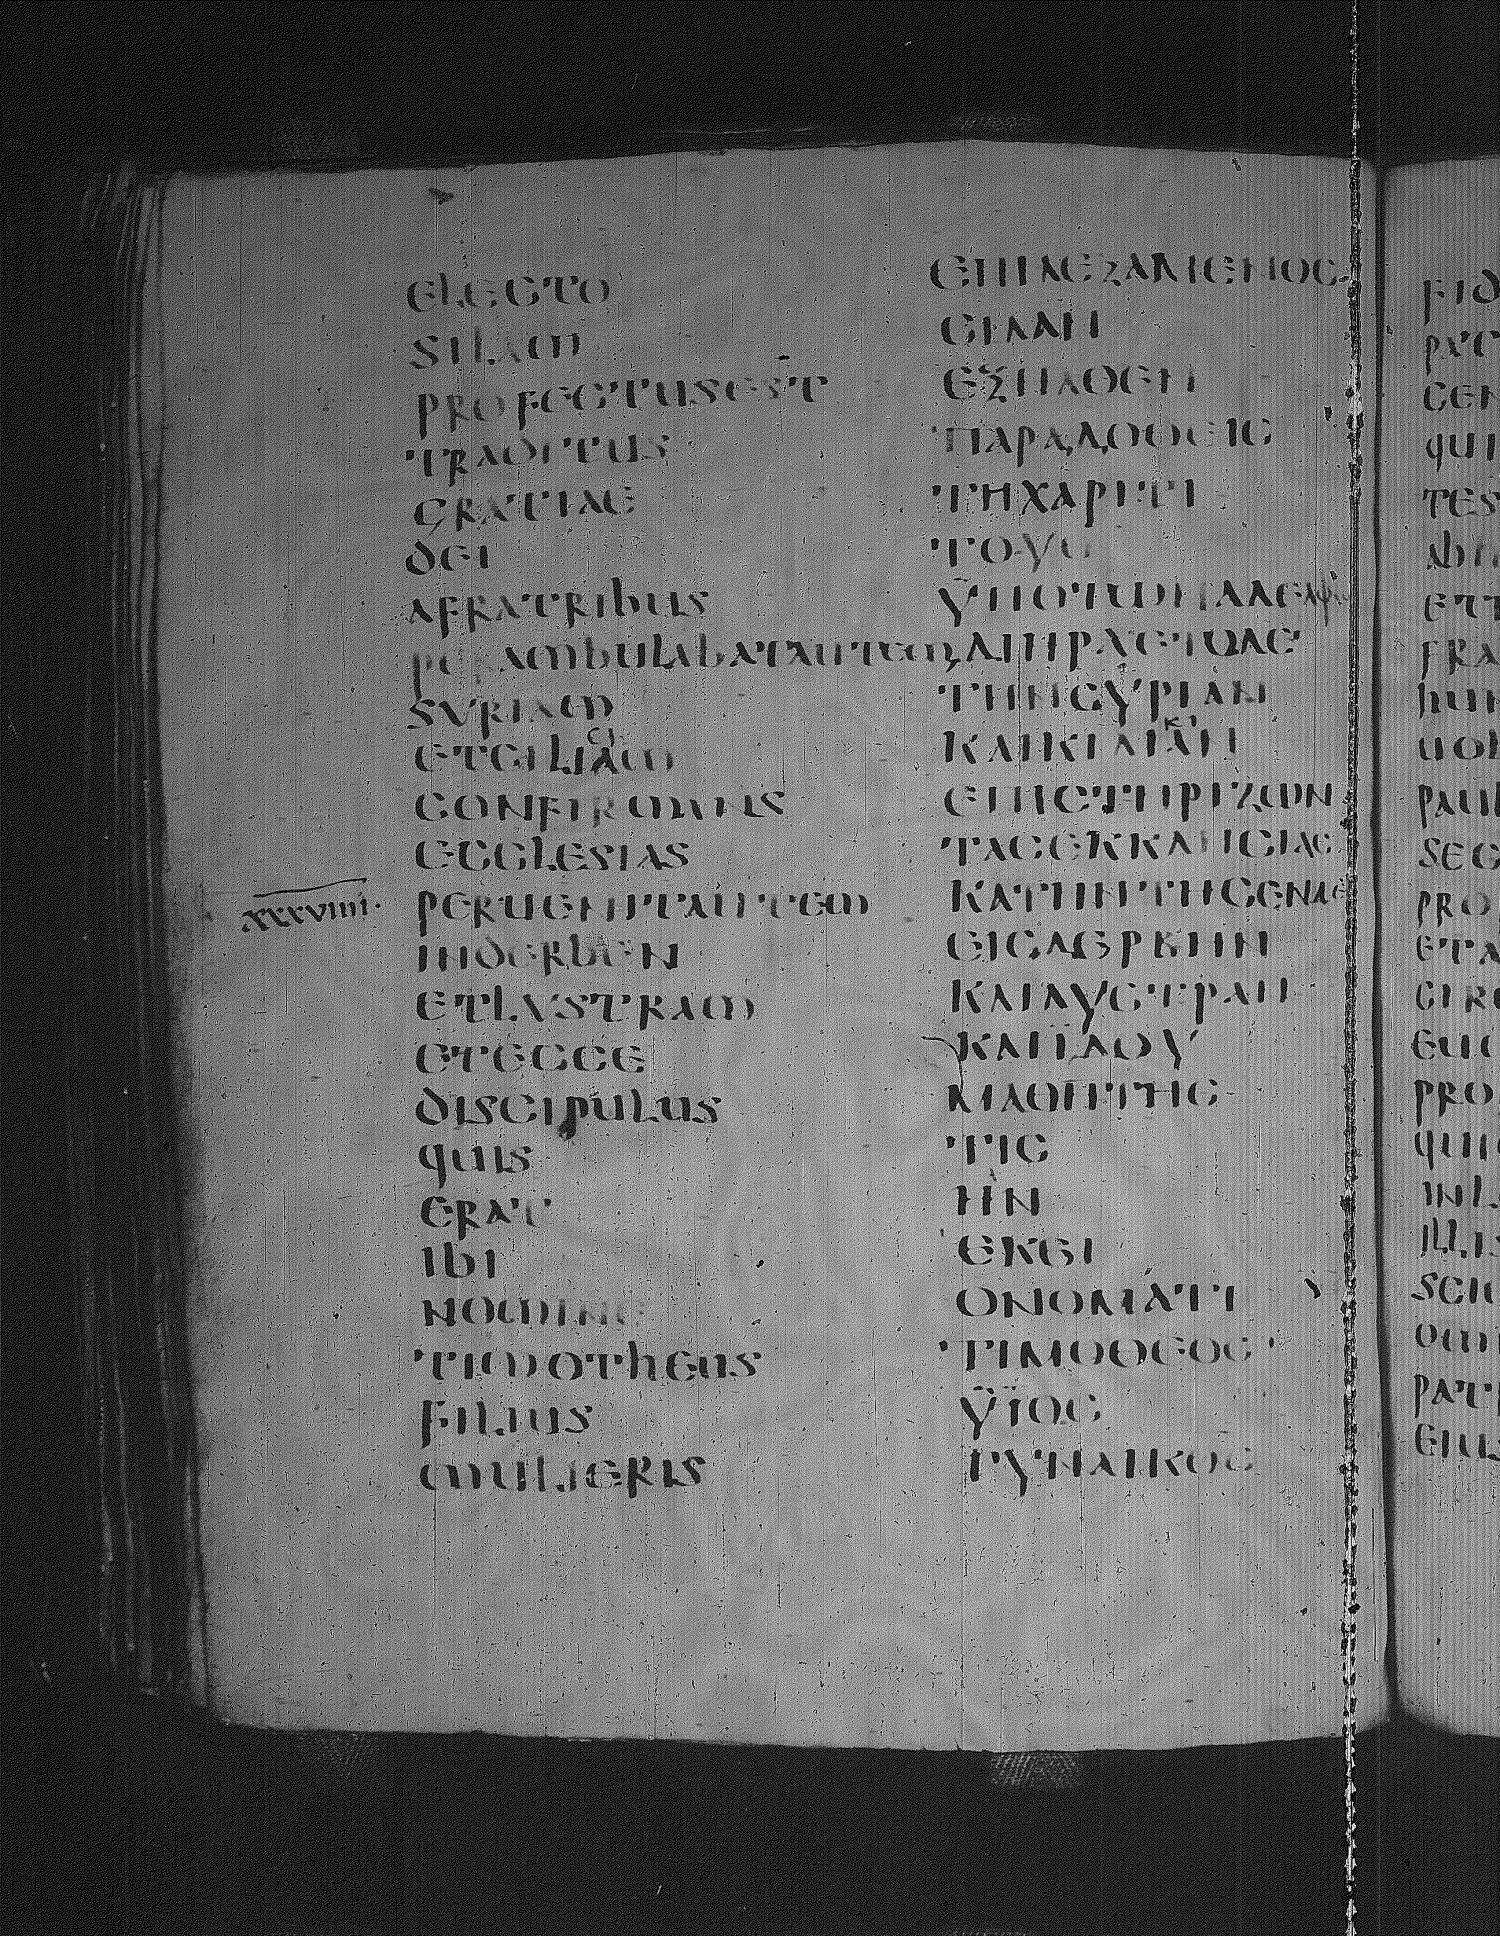 electo
silam
profectusest
traditus
gratiae
dei
afratribus
perambulabatautem
syriam
etciliam
ci
confirmans
ecclesias
xxxviiii·
peruenitautem
inderben
etlystram
etecce
discipulus
quis
erat
ibi
nomine
timotheus
filius
mulieris
ΕΠΙΛΕΞΑΜΕΝΟΣ
ϹΙΛΑΝ
ΕΞΗΛΘΕΝ
ΠΑΡΑΔΟΘΕΙϹ
ΤΗΧΑΡΙΤΙ
ΤΟΥ
ΫΠΟΤΩΝΑΔΕΛΦΩ
ΔΙΗΡΧΕΤΟΔΕ
ΤΗΝϹΥΡΙΑΝ
κι
ΚΑΙΚΙΛΙΑΝ
ΕΠΙϹΤΗΡΙΖΩΝ
ΤΑϹΕΚΚΛΗϹΙΑϹ
ΚΑΤΗΝΤΗϹΕΝΔΕ
ΕΙϹΔΕΡΒΗΝ
ΚΑΙΛΥϹΤΡΑΝ
ΚΑΙΪΔΟΥ
ΜΑΘΗΤΗϹ
ΤΙϹ
ΗΝ
ΕΚΕΙ
ΟΝΟΜΑΤΙ
ΤΙΜΟΘΕΟϹ
ΫΪΟϹ
ΓΥΝΑΙΚΟϹ